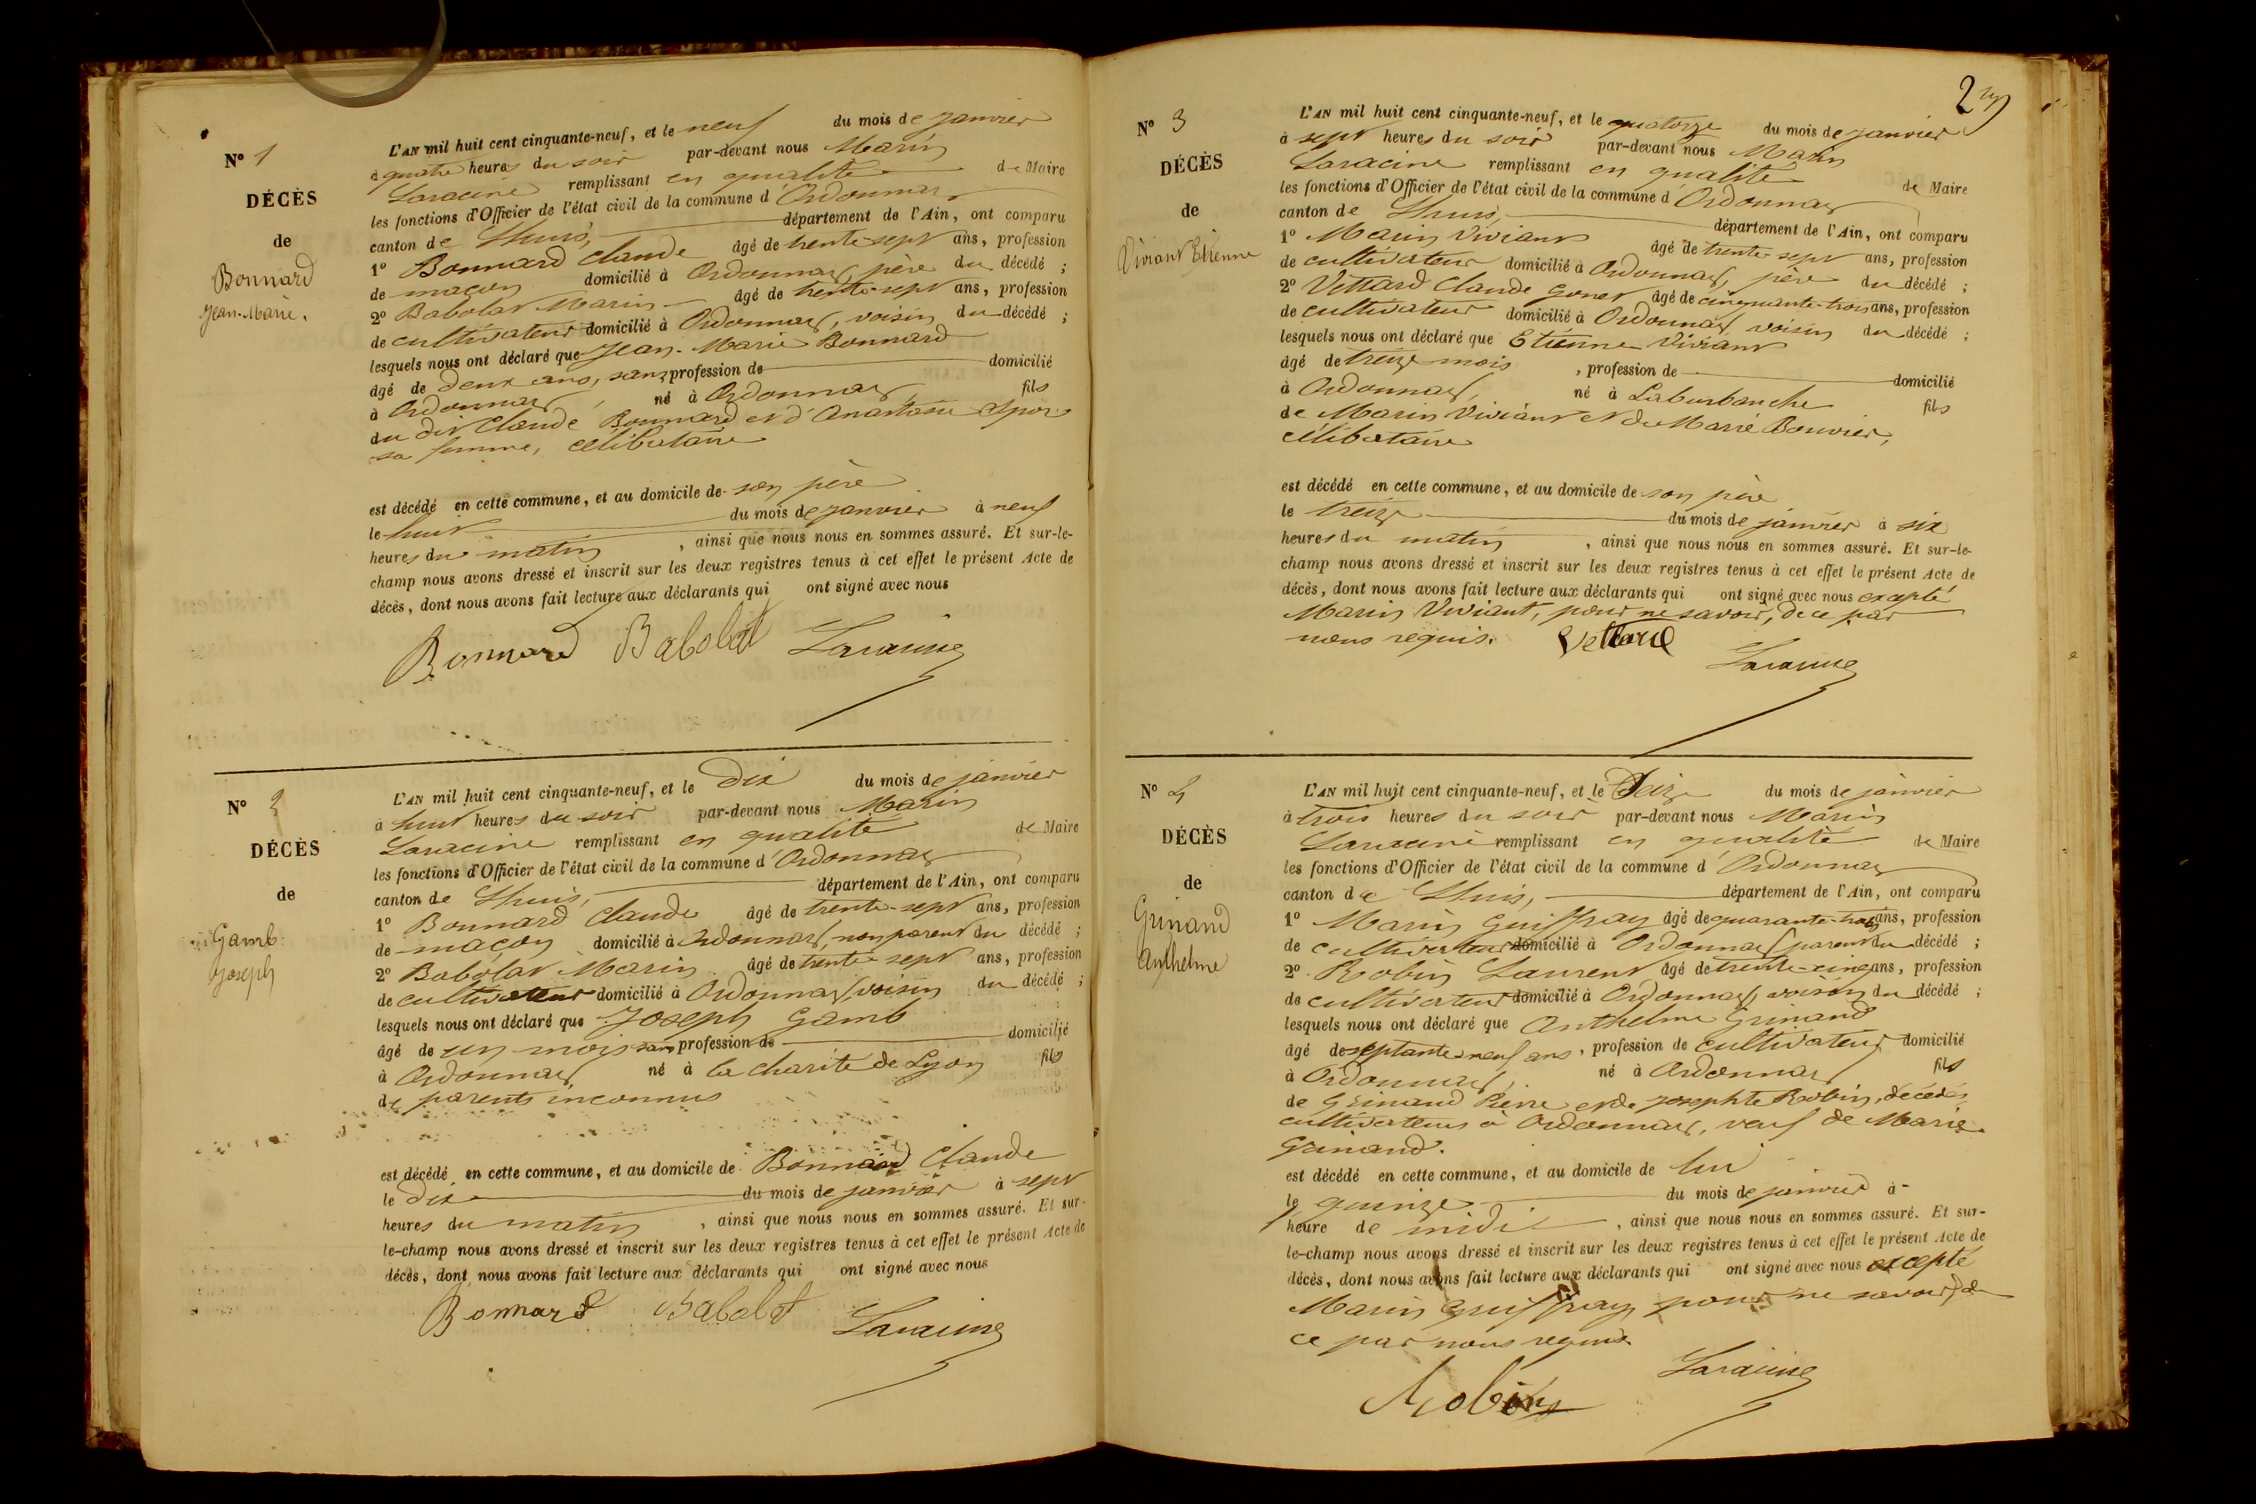 N° 1
DÉCÈS
de
Bonnard
Jean-Marie.
L'AN mil huit cent cinquante-neuf, et le neuf du mois de janvier
à quatre heures du soir par-devant nous Marin
Laracine remplissant en qualité de Maire
les fonctions d'Officier de l'état civil de la commune d'Ordonnas
canton de Lhuis, département de l'Ain, ont comparu
1° Bonnard Claude âgé de trente-sept ans, profession
de maçon domicilié à Ordonnas, père du décédé ;
2° Babolat Marin âgé de trente-sept ans, profession
de cultivateur domicilié à Ordonnas, voisin du décédé ;
lesquels nous ont déclaré que Jean-Marie Bonnard
âgé de deux ans, sans profession de domicilié
à Ordonnas, né à Ordonnas, fils
du dit Claude Bonnard et d'Anastasie
sa femme, célibataire
est décédé en cette commune, et au domicile de son père
le huit du mois de janvier à neuf
heures du matin, ainsi que nous nous en sommes assuré. Et sur-le-
champ nous avons dressé et inscrit sur les deux registres tenus à cet effet le présent Acte de
décès, dont nous avons fait lecture aux déclarants qui ont signé avec nous
Bonnard Babolat Laracine
N° 2
DÉCÈS
de
Gamb
Joseph
L'AN mil huit cent cinquante-neuf, et le dix du mois de janvier
à huit heures du soir par-devant nous Marin
Laracine remplissant en qualité de Maire
les fonctions d'Officier de l'état civil de la commune d'Ordonnas
canton de Lhuis, département de l'Ain, ont comparu
1° Bonnard Claude âgé de trente-sept ans, profession
de maçon domicilié à Ordonnas, non parent du décédé ;
2° Babolat Marin âgé de trente-sept ans, profession
de cultivateur domicilié à Ordonnas, voisin du décédé ;
lesquels nous ont déclaré que Joseph Gamb
âgé de un mois sans profession de domicilié
à Ordonnas, né à la charité de Lyon fils
de parents inconnus
est décédé en cette commune, et au domicile de Bonnard Claude
le dix du mois de janvier à sept
heures du matin, ainsi que nous nous en sommes assuré. Et sur-
le-champ nous avons dressé et inscrit sur les deux registres tenus à cet effet le présent Acte de
décès, dont nous avons fait lecture aux déclarants qui ont signé avec nous
Bonnard Babolat Laracine
2
N° 3
DÉCÈS
de
Viviant Etienne
L'AN mil huit cent cinquante-neuf, et le quatorze du mois de janvier
à sept heures du soir par-devant nous Marin
Laracine remplissant en qualité de Maire
les fonctions d'Officier de l'état civil de la commune d'Ordonnas
canton de Lhuis, département de l'Ain, ont comparu
1° Marin Viviant âgé de trente-sept ans, profession
de cultivateur domicilié à Ordonnas, père du décédé ;
2° Vettard Claude Gonet âgé de cinquante-trois ans, profession
de cultivateur domicilié à Ordonnas, voisin du décédé ;
lesquels nous ont déclaré que Etienne Viviant
âgé de treize mois, profession de domicilié
à Ordonnas, né à Laburbanche fils
de Marin Viviant et de Marie Bouvier,
célibataire
est décédé en cette commune, et au domicile de son père
le treize du mois de janvier à six
heures du matin, ainsi que nous nous en sommes assuré. Et sur-le-
champ nous avons dressé et inscrit sur les deux registres tenus à cet effet le présent Acte de
décès, dont nous avons fait lecture aux déclarants qui ont signé avec nous excepté
Marin Viviant, pour ne savoir, de ce par
nous requis. Vettard
Laracine
N° 4
DÉCÈS
de
Grinand
Anthelme
L'AN mil huit cent cinquante-neuf, et le Seize du mois de janvier
à trois heures du soir par-devant nous Marin
Laracine remplissant en qualité de Maire
les fonctions d'Officier de l'état civil de la commune d'Ordonnas
canton de Lhuis, département de l'Ain, ont comparu
1° Marin Guiffray âgé de quarante-trois ans, profession
de cultivateur domicilié à Ordonnas, parent du décédé ;
2° Robin Laurent âgé de trente-cinq ans, profession
de cultivateur domicilié à Ordonnas, voisin du décédé ;
lesquels nous ont déclaré que Anthelme Grinand
âgé de septante-neuf ans, profession de cultivateur domicilié
à Ordonnas, né à Ordonnas, fils
de Grinand Pierre et de Josephte Robin, décédés
cultivateurs à Ordonnas, veuf de Marie
Grinand.
est décédé en cette commune, et au domicile de lui
le quinze du mois de janvier à
heure de midi, ainsi que nous nous en sommes assuré. Et sur-
le-champ nous avons dressé et inscrit sur les deux registres tenus à cet effet le présent Acte de
décès, dont nous avons fait lecture aux déclarants qui ont signé avec nous excepté
Marin Guiffray pour ne savoir, de
ce par nous requis.
Laracine
Robin